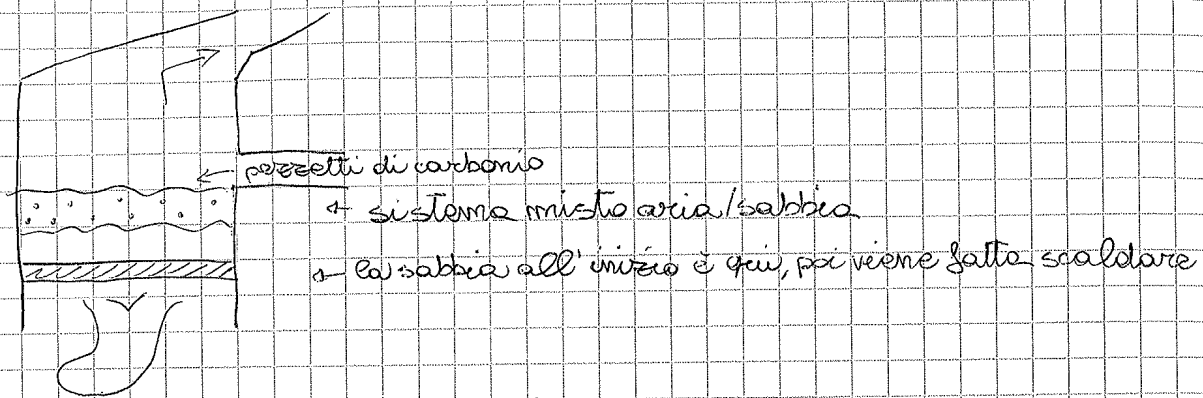 ← pezzetti di carbonio
← sistema misto aria/sabbia
← la sabbia all'inizio è qui, poi viene fatta scaldare